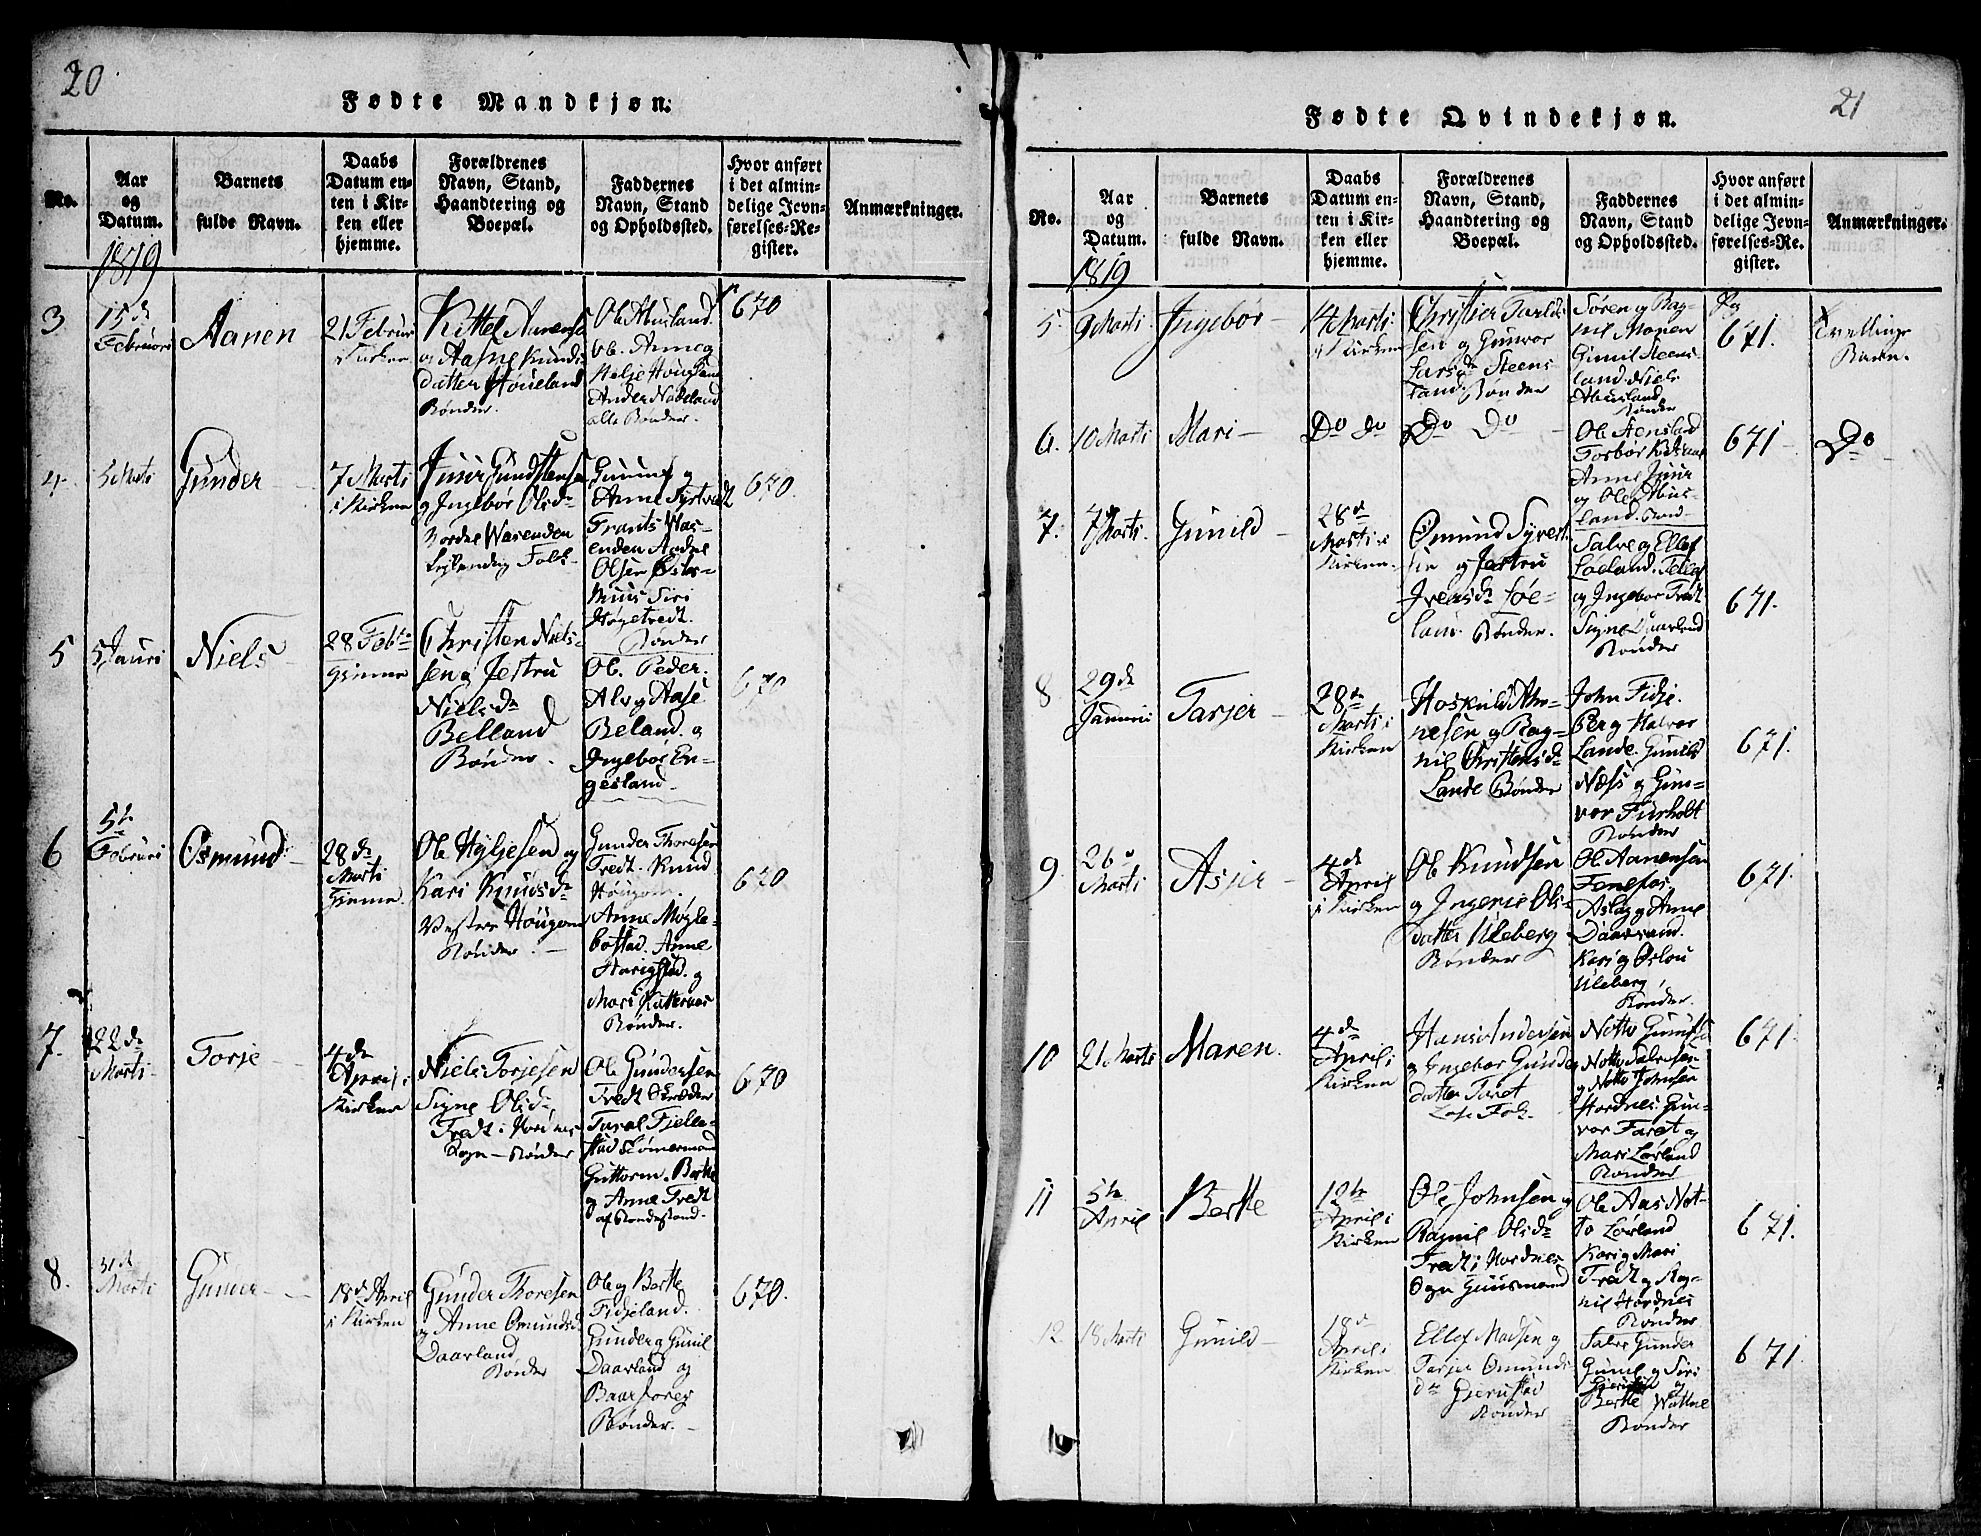 20
Fødte Mandkjøn.
No.
Aar
og
Datum.
Barnets
fulde Navn.
Daabs
Datum en-
ten i Kir-
ken eller
hjemme.
Forældrenes
Navn, Stand,
Haandtering og
Boepæl.
Faddernes
Navn, Stand
og Opholdssted.
Hvor anført
i det almin-
delige Jevn-
førelses-Re-
gister.
Anmærkninger.
1819
3
15de
Februari
Aanen
21 Februar
i Kirken
Kittel Aanensen
og Aasne Knuds
datter Høueland
Bønder.
Ole Abusland
Anne og
Helje Høugland
Ander Nadeland
alle Bønder.
670
4.
5 Marti
Gunder
7 Marti
i Kirken
og Ingebor Olsdr
Nordre Wasenden
Folk
Gunuf og
Anne Systvedt
Frants Was-
enden Andre
Olsen
Muus Siri
Høgetvedt.
Bønder
670.
5
5 Jauri
Niels
28 Febr
hiemme
Christen Niels-
sen og Jestru
Nielsdr
Belland
Bønder.
Ole. Peder.
Alv og Aase
Beland. og
Ingebor En-
gesland.
670
6
5te
Februri
Osmund
28de
Marti
hiemme.
Ole Hyljesen og
Kari Knudsdr
Vestre Hougom
Bønder.
Gunder Thoresen
Fredt. Knud
Hougom.
Anne Møgle-
bostad. Anne
og
Mari Katternes
Bønder.
670
7.
22de
Marti
Torje
4de
April i
Kirken
Niels Torjesen
Signe Olsdr
Tredt i Hordnes
Sogn - Bønder
Ole Gundersen
Tredt Skræder
Taral Fielle-
stad Tømermand
Guttorm. Berthe
og Anne Tredt
af Bondestand.
670
8.
31de
Marti
Gunder
18de April
i Kirken
Gunder Thoresen
og Anne Omundsd.
Daarland
Bønder
Ole og Berthe
Fidjeland.
Gunder og Gunil
Daarland og
Bønder.
670.
21
Fødte Qvindekjøn.
No.
Aar
og
Datum.
Barnets
fulde Navn.
Daabs
Datum en-
ten i Kir-
ken eller
hjemme.
Forældrenes
Navn, Stand,
Haandtering og
Boepæl.
Faddernes
Navn, Stand
og Opholdssted.
Hvor anført
i det almin-
delige Jevn-
førelses-Re-
gister.
Anmærkninger.
1819
5.
9 Marti.
Ingebor
14 Marti
i Kirken
Christen Tarld-
sen og Gunvor
Larsdr Steens
land Bønder
Søren og Rag-
nil Monen
Gunil Steens
land Niels
Abusland
Bønder
Pag
671.
Tvillinge
Børn.
6.
10 Marti
Mari
Do Do
Do Do
Ole Stensland
Torbor
Anne
og Ole Abus-
land. Bønd
671
Do
7.
7 Marti.
Gunild
28de
Marti i
Kirken.
Omund Syvert-
sen og Jestru
Iversdr Løe-
land. Bønder.
Salve og Ellef
Løeland. Tellef
og Ingebor Tredt
Signe Daarland
Bønder
671.
8
29de
Januari
Tarjer
28de
Marti i
Kirken
Hoskuld Aan-
nesen og Rag-
nil Christensdr
Lande Bønder
John Fidje.
Per og Halvor
Lande. Gunild
Næss og Gun-
vor Furholt
Bønder
671.
9.
26de
Marti
Asjer
4de
April
i Kirken
Ole Knudsen
og Ingerie Ols-
datter Uleberg
Bønder
Ole Aanensen
Fenefos.
Aslag og Anne
Daarsand.
Kari og Oslou
Uleberg,
Bønder.
671.
10
21 Marti
Maren.
4de
April i
Kirken
Hans Andersen
og Ingebor Gunder
datter Faret
Lose Folk.
Notto Salvesen
og Notto Johnsen
Hordnes. Gun-
vor Faret og
Mari Lørland
Bønder
671
11
5te
April
Berthe
12te
April i
Kirken
Ole Johnsen og
Ragnil Olsdr
Tredt i Hordnes
Sogn Huusmand
Ole Aas Not-
to Lørland
Kari og Mari
Tredt og Rag-
nil Hordnes
Bønder
671.
12
18 Marti
Gunild
18de
April i
Kirken
Ellef Madsen og
Tarjer Omunds
dr Gierustad
Bønder
Salve Gunder
Gunil og Siri
Gierustad og
Berthe Wattne
Bønder
671.